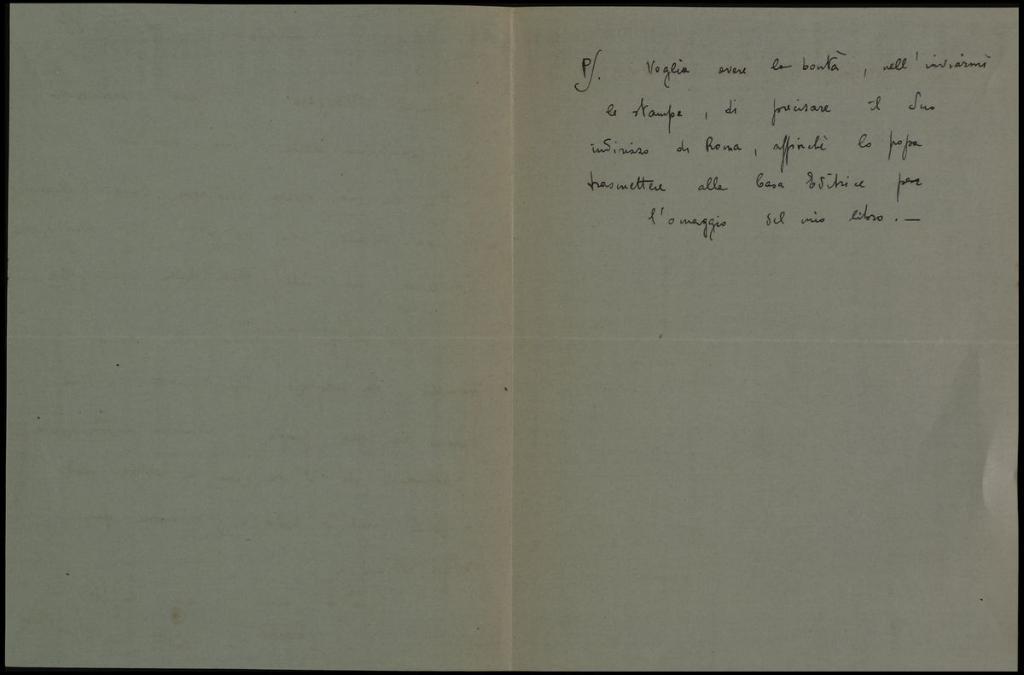 PS. Voglia avere la bontà, nell'inviarmi
le stampe, di precisare il Suo
indirizzo di Roma, affinchè lo possa
trasmettere alla Casa Editrice per
l'omaggio del mio libro. —